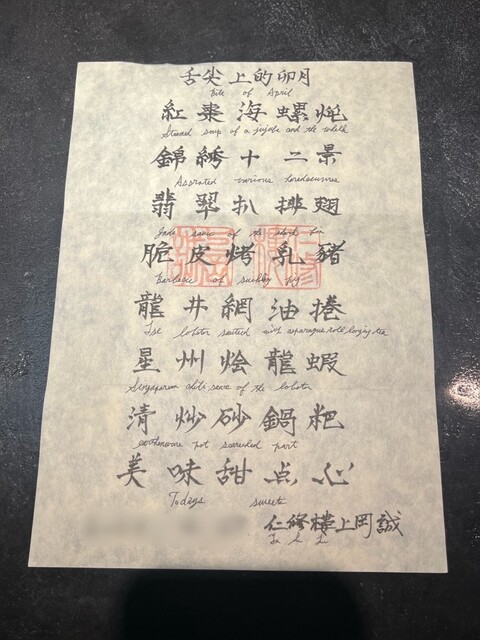 舌尖上的卯月
Bite of April
紅棗海螺炖
Steamed soup of a jujube and the whelk
錦綉十二景
Assorted various horsdoeuvres
翡翠扒排翅
Jade sauce of the shark fin
脆皮烤乳豬
Barbecue of suckling pig
龍井網油捲
Ise lobster sauteed with asparagus roll longing tea
星州烩龍蝦
Singaporean chili sauce of the lobster
清炒砂鍋粑
earthenware pot scorched part
美味甜点心
Todays sweets
仁修樓上岡誠